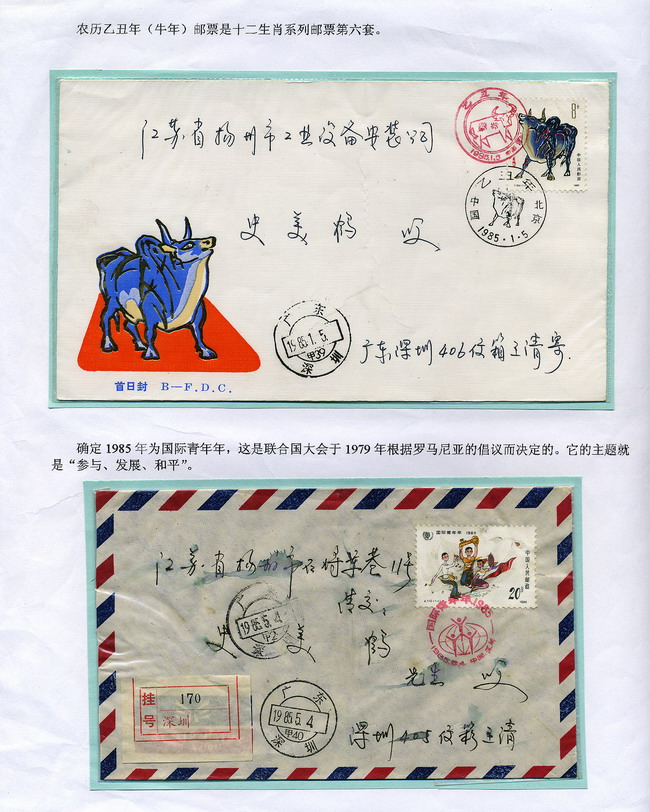 农历乙丑年（牛年）邮票是十二生肖系列邮票第六套。
乙丑年
1985.1.5
8分
中国人民邮政
江苏省扬州市工业设备安装公司
乙丑年
中国 北京
1985·1·5
史美鹤 收
广东
1985.1.5
甲39
深圳
广东深圳406信箱王清寄
首日封 B—F.D.C.
确定1985年为国际青年年，这是联合国大会于1979年根据罗马尼亚的倡议而决定的。它的主题就
是“参与、发展、和平”。
国际青年年 1985
中国人民邮政
20分
江苏省扬州市石将军巷11号
1985.5.4
深圳
史美鹤
先生 收
国际青年年1985
挂号
170
深圳
广东
1985.5.4
甲40
深圳
深圳405信箱王清